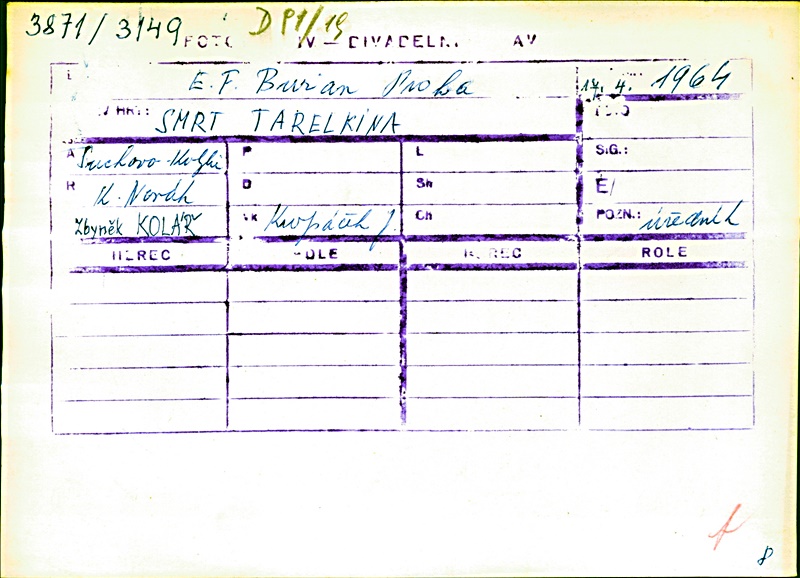 3871/3149 D P1/19
FOTO IV – DIVADELN. AV
E. F. Burian Praha 17. 4. 1964
V HRY: SMRT TARELKINA
A Suchovo-Kobylin P L SIG.:
R K. Novák D Sh Č/
Zbyněk KOLÁŘ Vk Kropáček J Ch POZN.: úředník
HEREC ROLE HEREC ROLE
8